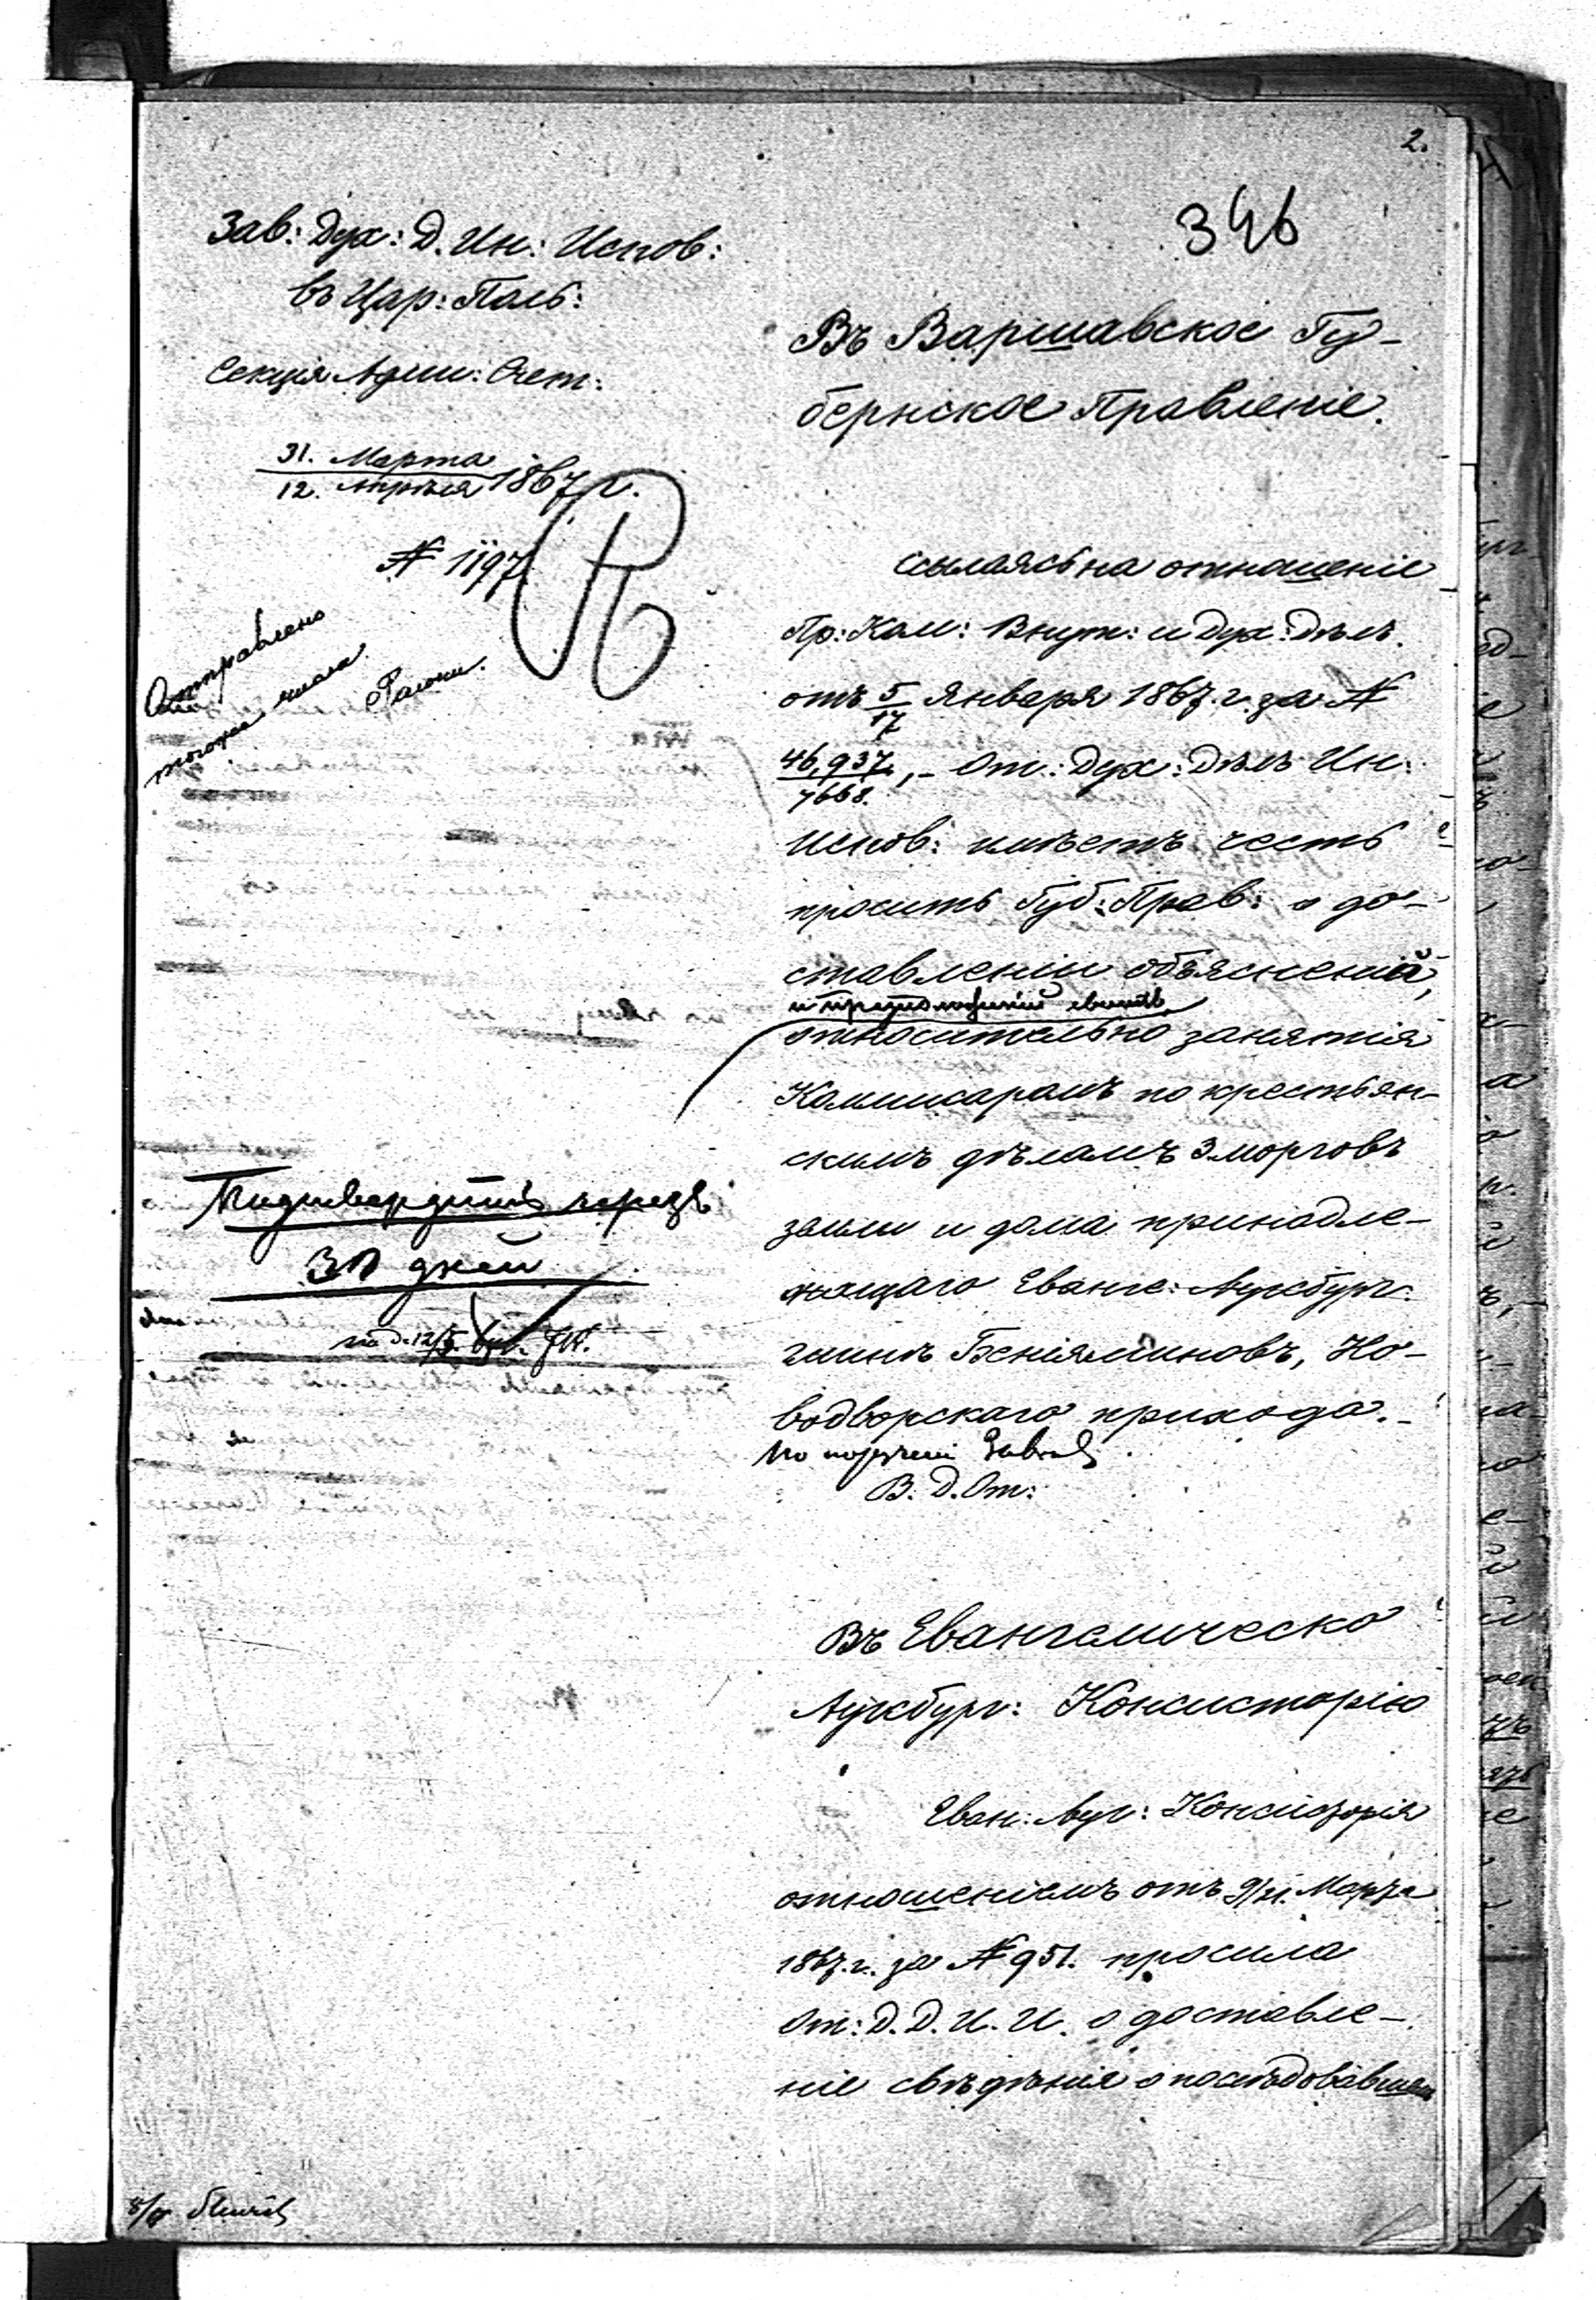 2.
346
Зав: Дух: Д. Ин: Испов:
въ Цар: Поль:
Секція Адми: Счет:
31. Марта
12. Апрѣля 1867 г.
№ 1197
Отправлено
тогоже числа
Въ Варшавское Гу-
бернское Правленіе.
Ссылаясь на отношеніе
Пр: Ком: Внут: и Дух: Дѣлъ.
отъ 5/17 Января 1867. г. за №
46,937/7668., - От: Дух: Дѣлъ Ин:
Испов: имѣетъ честь
просить Губ: Прав: о до-
ставленіи объясненій,
и предположеній
относительно занятія
Коммисаромъ по крестьян-
скимъ дѣламъ 3 морговъ
земли и дома принадле-
жащаго Еванге: Аугсбург:
гминѣ Беніяминовъ, Но-
водворскаго прихода.-
По поруч:
В. Д. От:
Подтвердить черезъ
30 дней
Въ Евангелическо
Аугсбург: Консисторію
Еван: Ауг: Консисторія
отношеніемъ отъ 9/21. Марта
1867. г. за № 951. просила
От: Д. Д. И. И. о доставле-
ніе свѣдѣнія о послѣдовавшемъ